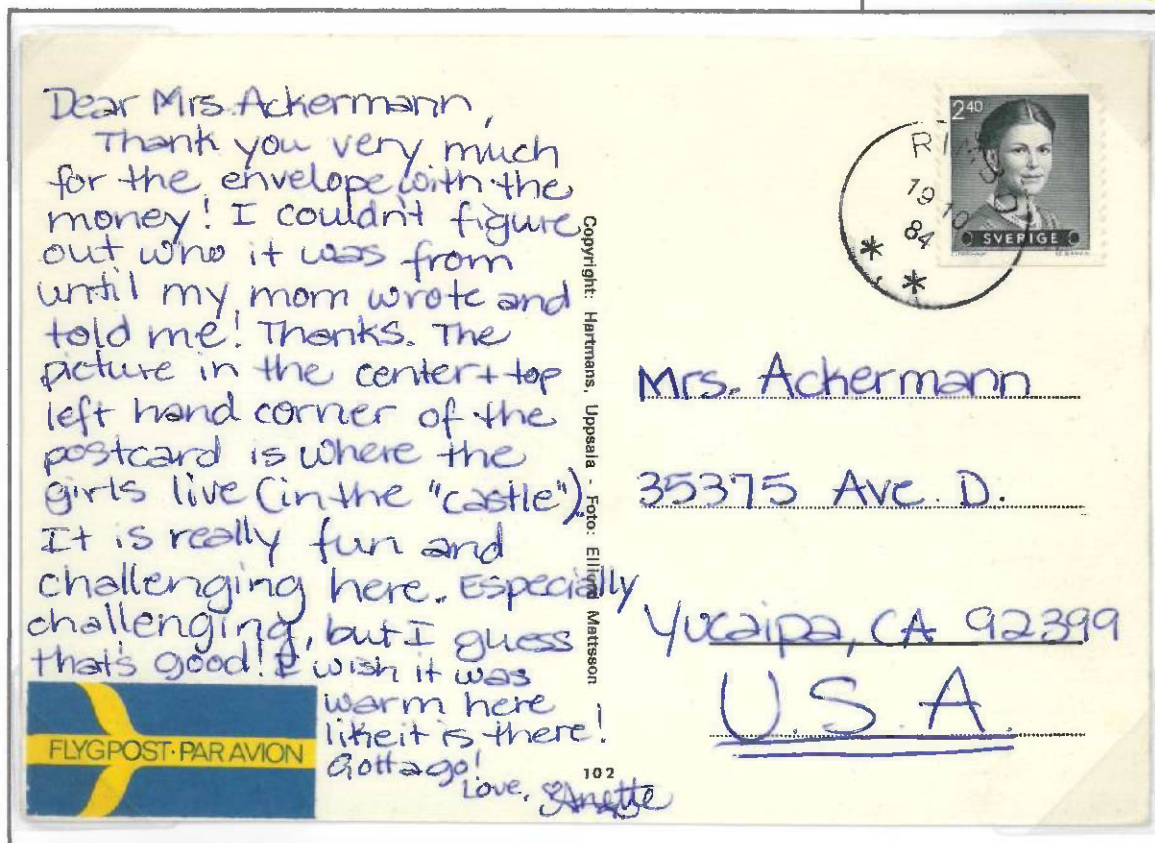 Dear Mrs. Ackermann,
Thank you very much
for the envelope with the
money! I couldn't figure
out who it was from
until my mom wrote and
told me! Thanks. The
picture in the center + top
left hand corner of the
postcard is where the
girls live (in the "castle").
It is really fun and
challenging here. Especially
challenging, but I guess
that's good! I wish it was
warm here
like it is there!
Gotta go!
Love, Anette
FLYGPOST·PAR AVION
Copyright: Hartmans, Uppsala - Foto: Ellignd Mattsson
102
2 40
SVERIGE
19 10
84
Mrs. Ackermann
35375 Ave. D.
Yucaipa, CA 92399
U.S.A.